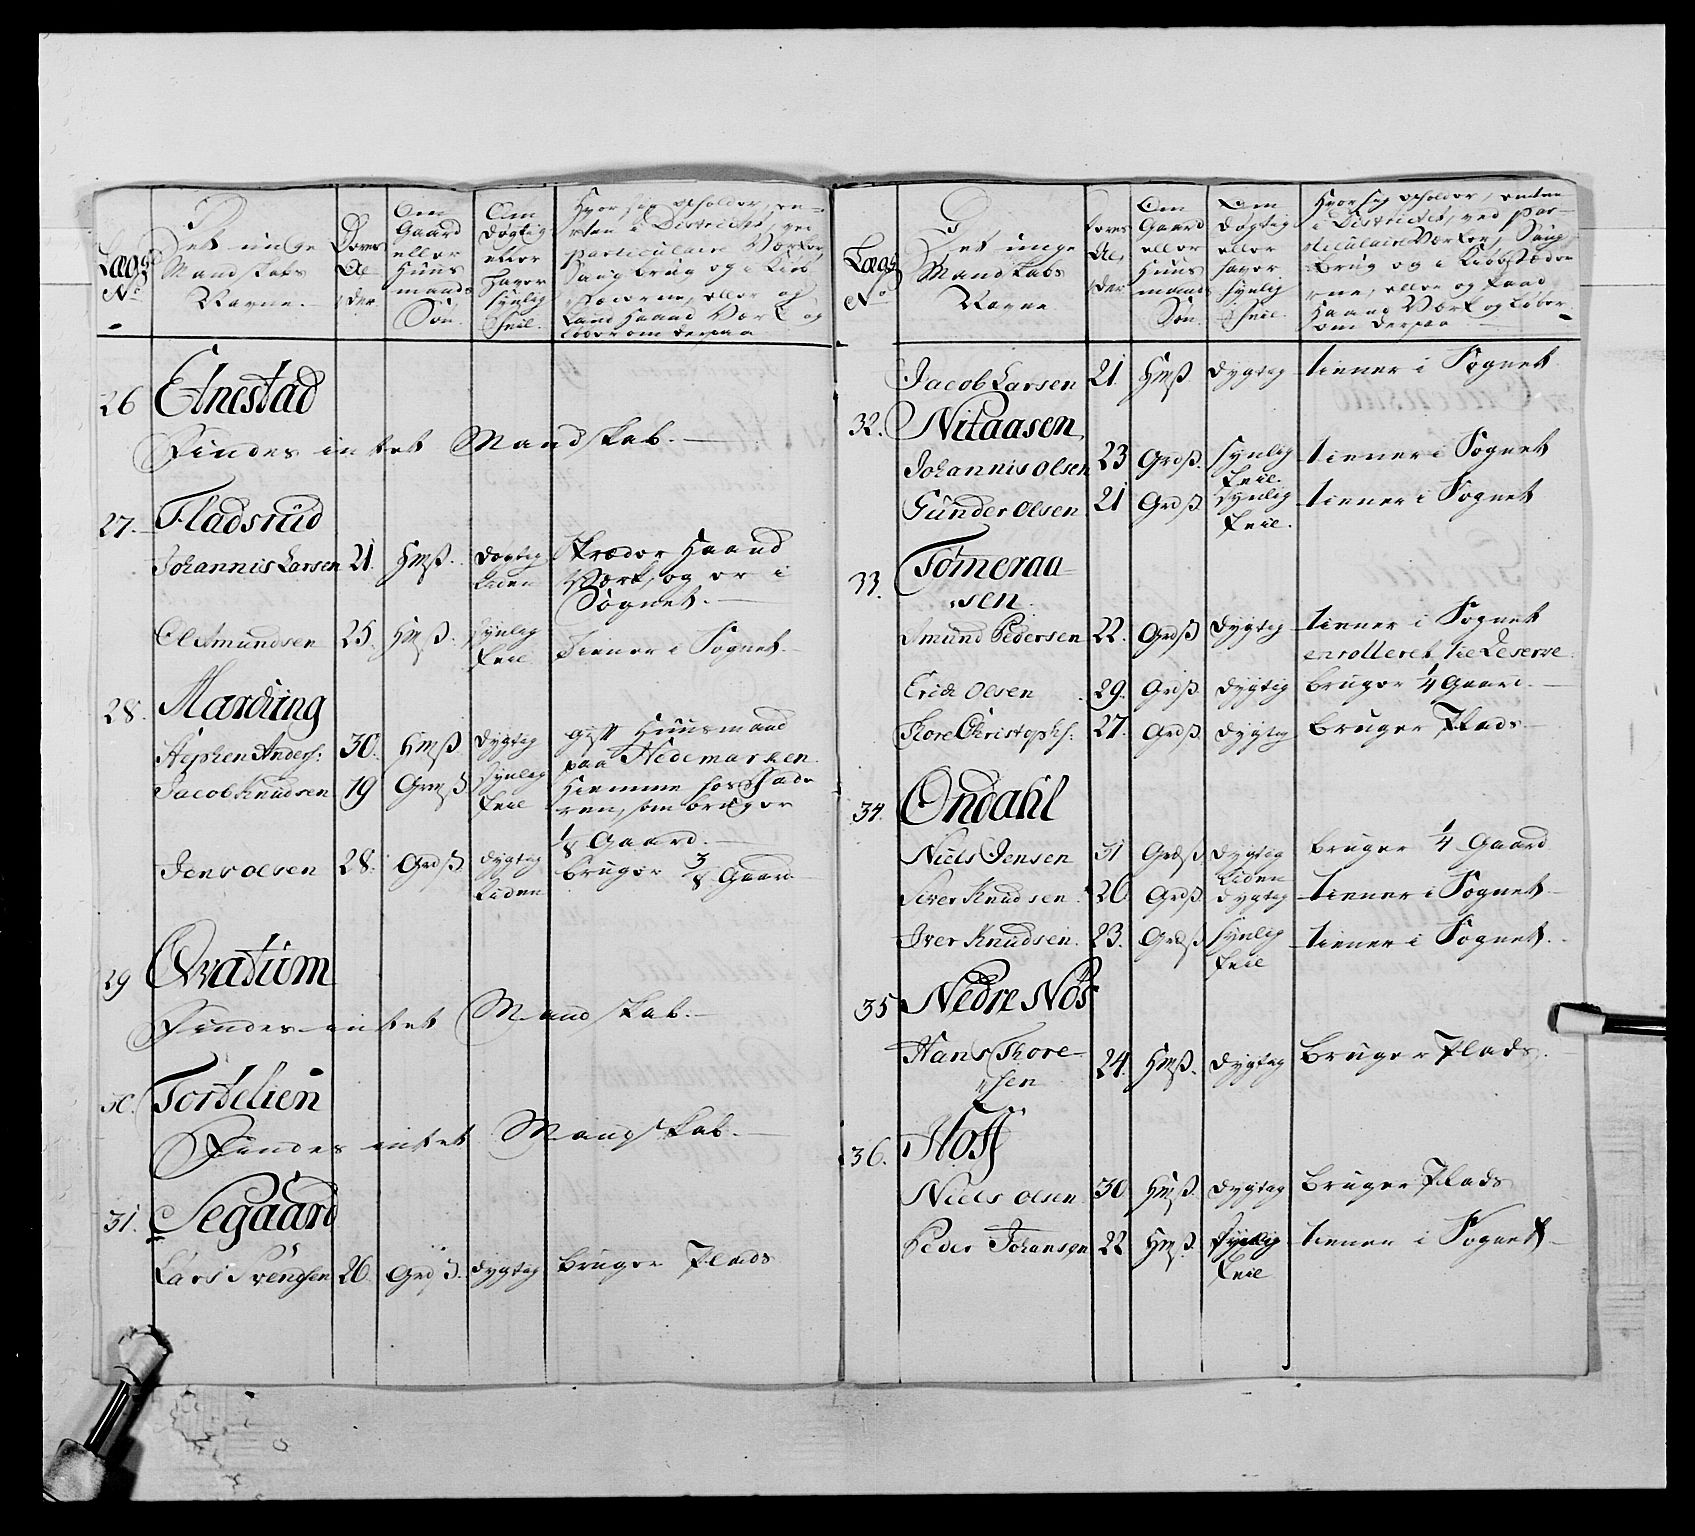 Lægs
No
Det unge
Mandskabs
Navne.
Deres
Al
der
Om
Gaard
eller
Huus
mands
Søn
Om
Døgtig
eller
Haver
synlig
Feil.
Hvor sig opholder, en-
ten i Districtet, ved
particulaire Værker
Saugbrug og i Kiøb
stæderne, eller og
Land Haand Værk og
26 Etnestad
Findes intet Mandskab.
27. Fladsrud
Johannis Larsen 21. HmS. Døgtig Liden Skræder Haand
Værk, og er i
Søgnet.
Ole Amundsen 25. HmS. synlig Feil Tiener i Sognet.
28. Marding
Stephen Anders: 30. HmS dygtig gift Huusmand
paa Hedemarken.
Jacob Knudsen 19 GrmS synlig Feil Hiemme hos Fade
ren, som bruger
1/8 Gaard.
Jens olsen 28. GrdS dygtig Liden bruger 3/8 Gaard
29 Qvatum
Findes intet Mandskab.
30. Tortelien
Findes intet Mandskab.
31. Segaard
Lars Svendsen 26. GrdS. dygtig bruger Plads
Lægs
No
Det unge
Mandskabs
Navne
Deres
Al
der
Om
Gaard
eller
Huus
mands
Søn.
Om
Dygtig
eller
haver
synlig
Feil.
Hvor sig opholder, enten
i Districtet, ved par-
ticulaire Værker, Saug
Brug og i Kiøbstæder
ne, eller og Land
Haand Værk og Løber
om derpaa
Jacob Larsen 21. HmS dygtig tiener i Sognet
32. Nitaasen
Johannis olsen 23 GrdS. synlig Feil. tiener i Sognet
Gunder olsen 21 GrdS synlig Feil. tiener i Sognet
33. Tømeraa-
sen.
Amund Pedersen 22. GrdS dygtig tiener i Sognet
enrolleret til Reserve.
Erich olsen 29. GrdS. dygtig bruger 1/4 Gaard.
Thore Christophs: 27. GrdS. dygtig bruger Plads
34. Ondahl
Niels Jensen 31 GrdS dygtig Liden bruger 1/4 Gaard
Siver Knudsen 26. GrdS. dygtig tiener i Sognet
Iver Knudsen. 23. GrdS synlig Feil tiener i Sognet.
35 Nedre Nøs
Hans Thore-
sen 24. HmS. dygtig bruger Plads.
36. Hoff
Niels olsen 30 HmS. dygtig bruger Plads
Peder Johansen 22 HmS. synlig Feil tiener i Sognet